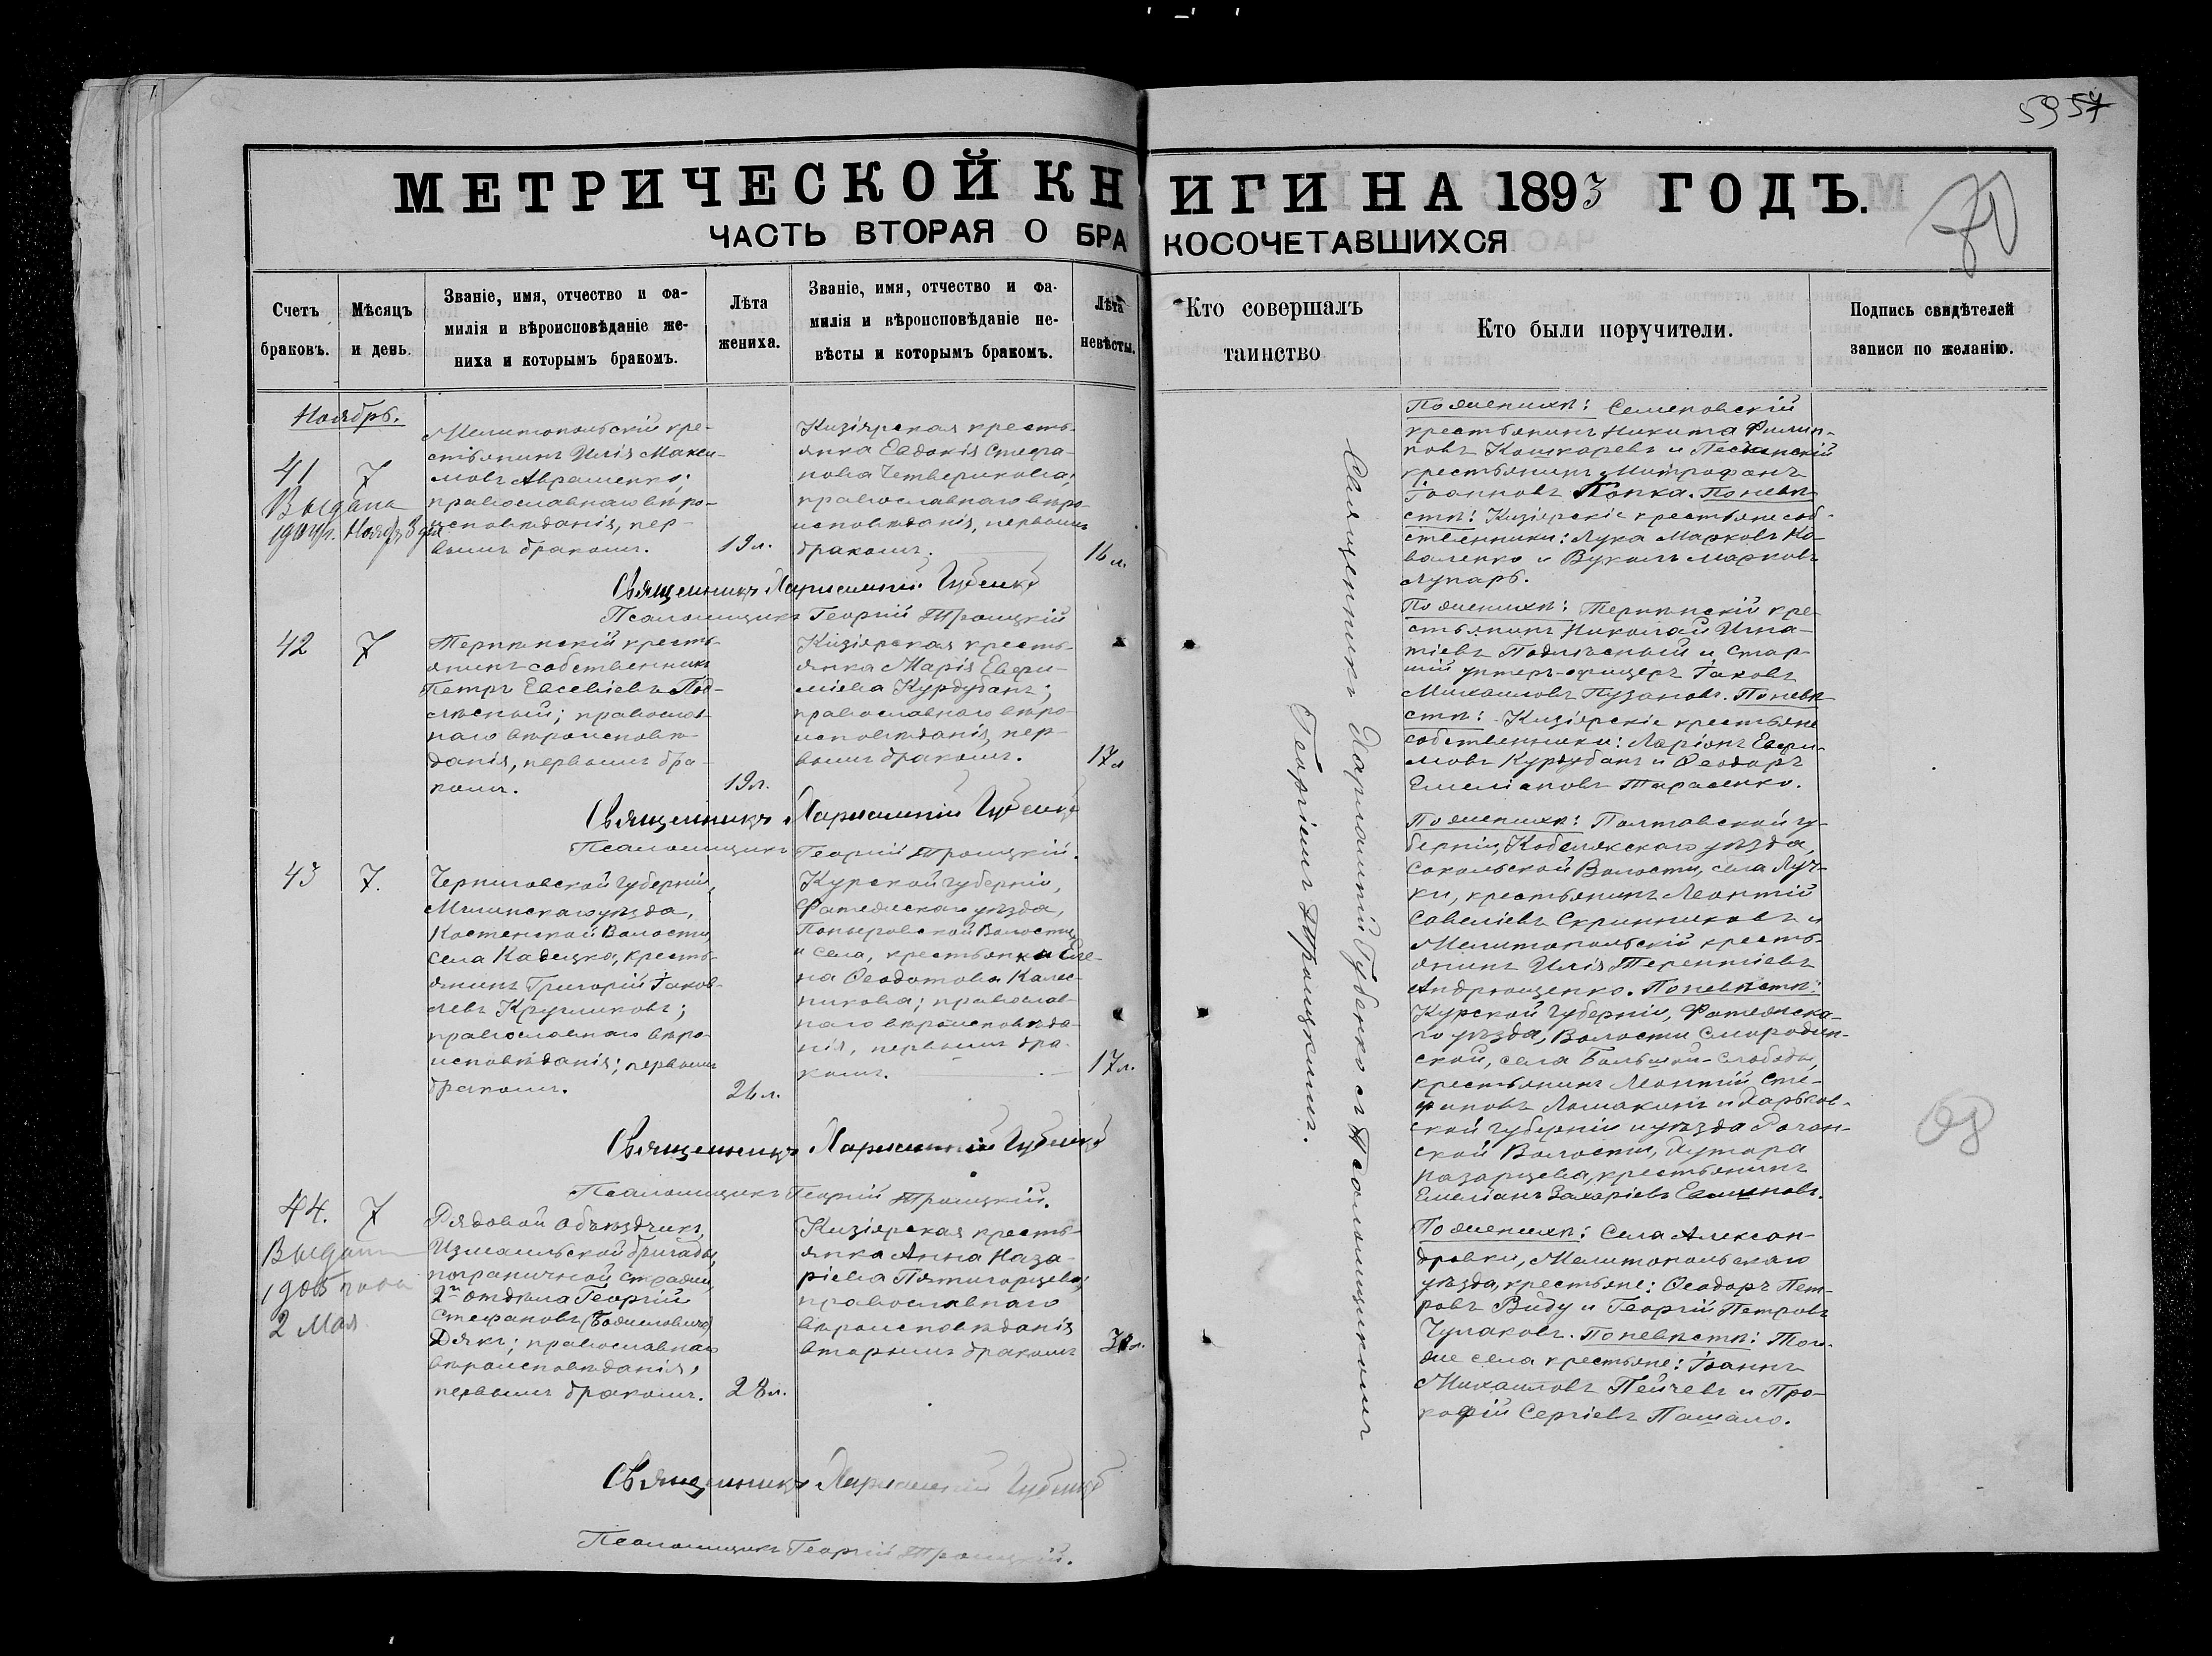 59 57
70
МЕТРИЧЕСКОЙ КНИГИ НА 1893 ГОДЪ.
ЧАСТЬ ВТОРАЯ О БРАКОСОЧЕТАВШИХСЯ
Счетъ браковъ.
Мѣсяцъ и день.
Званіе, имя, отчество и фа-
милія и вѣроисповѣданіе же-
ниха и которымъ бракомъ.
Лѣта
жениха.
Званіе, имя, отчество и фа-
милія и вѣроисповѣданіе не-
вѣсты и которымъ бракомъ.
Лѣта
невѣсты.
Кто совершалъ
таинство
Кто были поручители.
Подпись свидѣтелей
записи по желанію.
Ноябрь.
41
7
Выдана
1904 г. Ноябр 3 дня
Мелитопольскій кре-
стьянинъ Илія Макси-
мовъ Авраменко;
православнаго вѣро-
исповѣданія, пер-
вымъ бракомъ.
19 л.
Кизіярская кресть-
янка Евдокія Стефа-
нова Четверикова;
православнаго вѣро-
исповѣданія, первымъ
бракомъ.
16 л.
По женихѣ: Семеновскій
крестьянинъ Никита Филип-
повъ Кошкаревъ и Песчанскій
крестьянинъ Митрофанъ
Іоанновъ Попка. По невѣ-
стѣ: Кизіярскіе крестьяне соб-
ственники: Лука Марковъ Ко-
валенко и Вуколъ Марковъ
Лупарь.
Священникъ Харлампій Губенко
Псаломщикъ Георгій Троицкій
42
7
Терпѣнскій кресть-
янинъ собственникъ
Петръ Евсевіевъ Под-
лѣсный; православ-
наго вѣроисповѣ-
данія, первымъ бра-
комъ.
19 л.
Кизіярская кресть-
янка Марія Евфи-
міева Курдубанъ;
православнаго вѣро-
исповѣданія, пер-
вымъ бракомъ.
17 л
По женихѣ: Терпѣнскій кре-
стьянинъ Николай Игна-
тіевъ Подлѣсный и Стар-
шій унтеръ-офицеръ Іаковъ
Михаиловъ Пузановъ. По невѣ-
стѣ: Кизіярскіе крестьяне
собственники: Ларіонъ Евфи-
мовъ Курдубанъ и Ѳеодоръ
Емеліановъ Тарасенко.
Священникъ Харлампій Губенко
Псаломщикъ Георгій Троицкій.
43
7.
Черниговской губерніи,
Мглинскаго уѣзда,
Костенской Волости,
села Кадецка, кресть-
янинъ Григорій Іаков-
левъ Кругликовъ;
православнаго вѣро-
исповѣданія; первымъ
бракомъ.
26 л.
Курской губерніи,
Фатежскаго уѣзда,
Поныровской Волости
и села, крестьянка Еле-
на Ѳеодотова Колес-
никова; православ-
наго вѣроисповѣда-
нія, первымъ бра-
комъ.
17 л.
По женихѣ: Полтавской гу-
берніи, Кобелякскаго уѣзда,
Сокольской Волости, села Луч-
ки, крестьянинъ Леонтій
Савеліевъ Скринниковъ и
Мелитопольскій кресть-
янинъ Илія Терентіевъ
Андрющенко. По невѣстѣ:
Курской губерніи, Фатежска-
го уѣзда, Волости Смородин-
ской, села Большой-Слободы,
крестьянинъ Леонтій Сте-
фановъ Ломакинъ и Харьков-
ской губерніи и уѣзда
ской Волости, Хутора
крестьянинъ
Емеліанъ Захаріевъ
Священникъ Харлампій Губенко
Псаломщикъ Георгій Троицкій.
44.
7
Выдана
1905 года
2 Мая
Рядовой Объѣздчикъ,
Измаильской бригады,
пограничной стражи,
2го отдѣла Георгій
Стефановъ
Дякъ; православнаго
вѣроисповѣданія,
первымъ бракомъ.
28 л.
Кизіярская кресть-
янка Анна Наза-
ріева Пятигорцева;
православнаго
вѣроисповѣданія
вторымъ бракомъ
По женихѣ: Села Алексан-
дровки, Мелитопольскаго
уѣзда, крестьяне: Ѳеодоръ Пет-
ровъ Виду и Георгій Петровъ
Чумаковъ. По невѣстѣ: Того-
же села крестьяне: Іоаннъ
Михаиловъ Пейчевъ и Про-
кофій Сергіевъ Пашало.
Священникъ Харлампій Губенко
Псаломщикъ Георгій Троицкій.
Священникъ Харлампій Губенко съ Псаломщикомъ
Георгіемъ Троицкимъ.
68